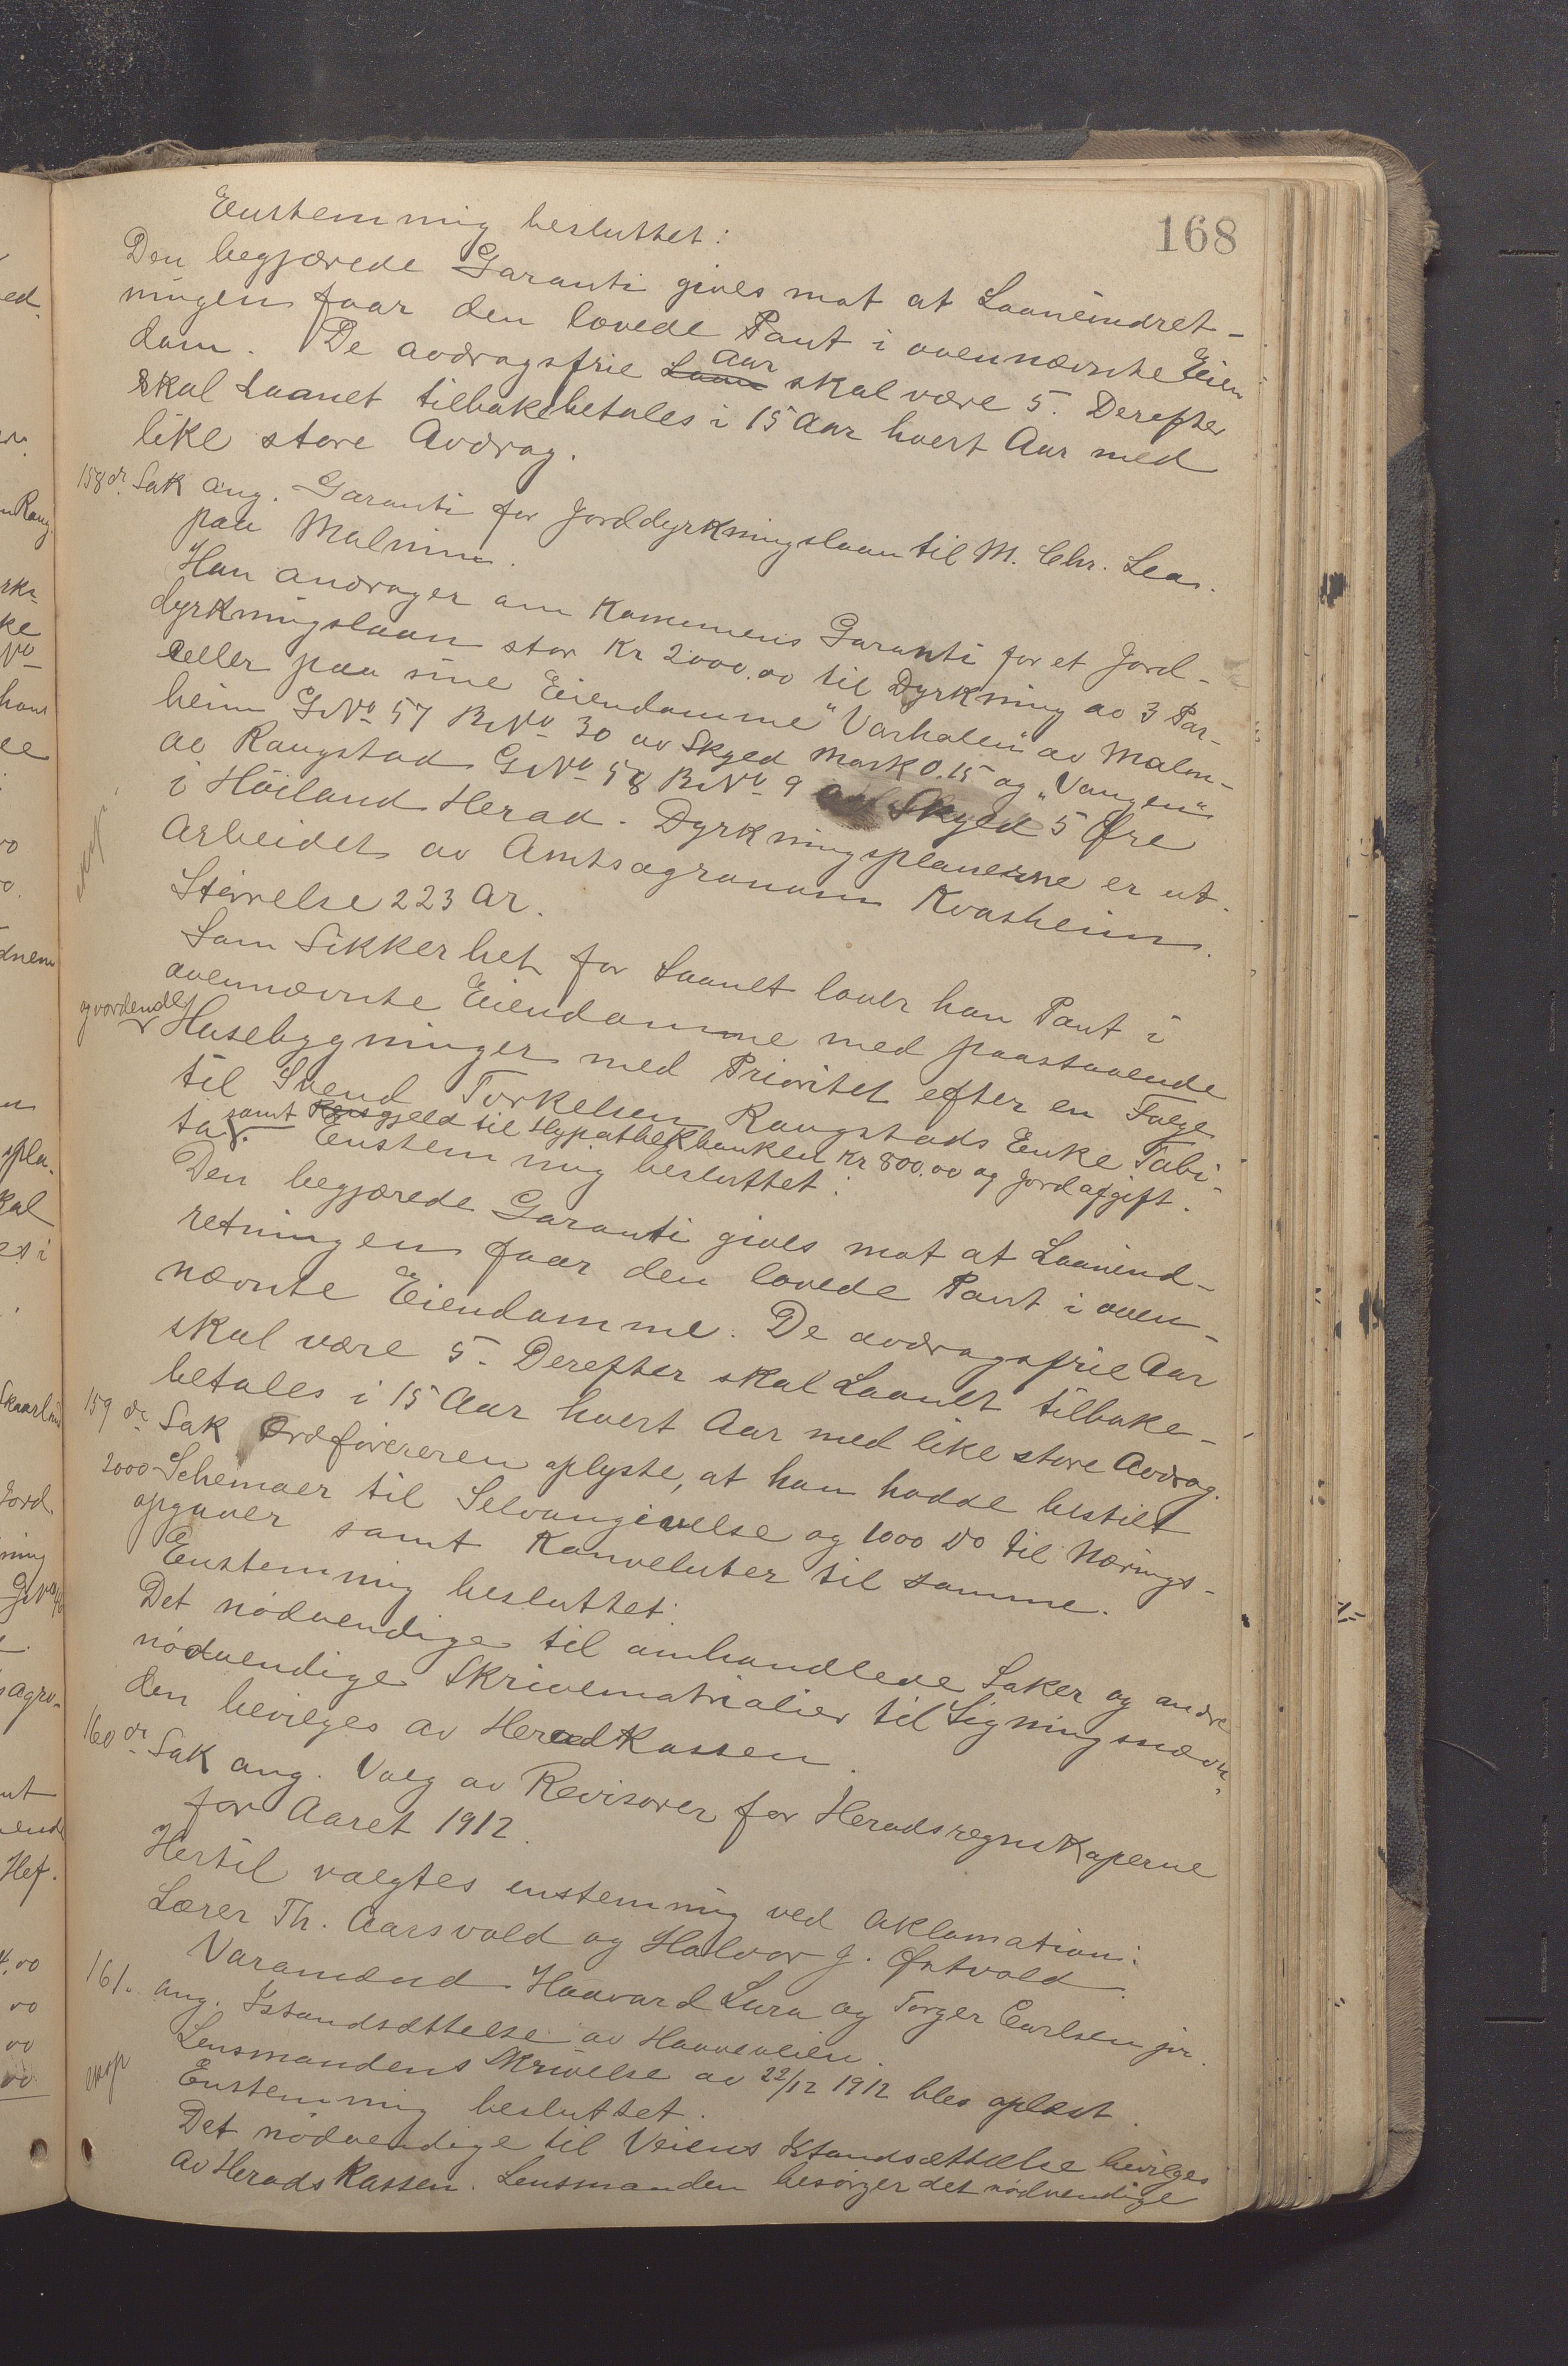 168
Enstemmig besluttet:
Den begjærede Garanti gives mot at Laaneindret-
ningen faar den lovede Pant i ovennævnte Eien
dom. De avdragsfrie Laane Aar skal være 5. Derefter
skal Laanet tilbakebetales i 15 Aar hvert Aar med
like store Avdrag.
158de Sak ang. Garanti for Jorddyrkningslaan til M. Chr. Lea.
paa Malmin.
Han andrager om Kommunens Garanti for et Jord-
dyrkningslaan stor Kr 2000.00 til Dyrkning av 3 Par-
celler paa sine Eiendomme "Varhalen" av Malm-
heim GNo 57 BNo 30 av Skyld Mark 0.15 og "Vangen"
av Raugstad GNo 58 BNo 9 av Skyld 5 Øre
i Höiland Herad. Dyrkningsplanerne er ut.
arbeidet av Amtsagronom Kvasheim.
Störrelse 223 Ar.
Som Sikkerhet for Laanet lover han Pant i
ovennævnte Eiendomme med paastaaende
og vordende
Husebygninger med Prioritet efter en Folge
til Svend Torkelsen Raugstads Enke Tabi-
ta. samt Rensgjeld til Hypothekbanken Kr 800.00 og Jordafgift.
Enstemmig besluttet:
Den begjærede Garanti gives mot at Laanind-
retningen faar den lovede Pant i oven-
nævnte Eiendomme. De avdragsfrie Aar
skal være 5. Derefter skal Laanet tilbake-
betales i 15 Aar hvert Aar med like store Avdrag.
159de Sak Ordföreren oplyste, at han hadde bestilt
2000 Schemaer til Selvangivelse og 1000 Do til Nærings-
opgaver samt Konveluter til samme.
Enstemmig besluttet:
Det nödvendige til omhandlede Saker og andre
nödvendige Skrivematrialier til Ligningsnævn-
den bevilges av Heradkassen.
160de Sak ang. Valg av Revisorer for Heradsregnskaperne
for Aaret 1912.
Hertil valgtes enstemmig ved Aklamation:
Lærer Th. Aarsvold og Halvor J. Østvold.
Varamænd Haavard Lura og Torger Carlsen jr.
161. ang. Istandsættelse av Hanaveien.
Lensmandens Skrivelse av 22/12 1912 blev oplæst.
exp
Enstemmig besluttet.
Det nödvendige til Veiens Istandsættelse bevilges
av Herads Kassen. Lensmanden besörger det nödvendige